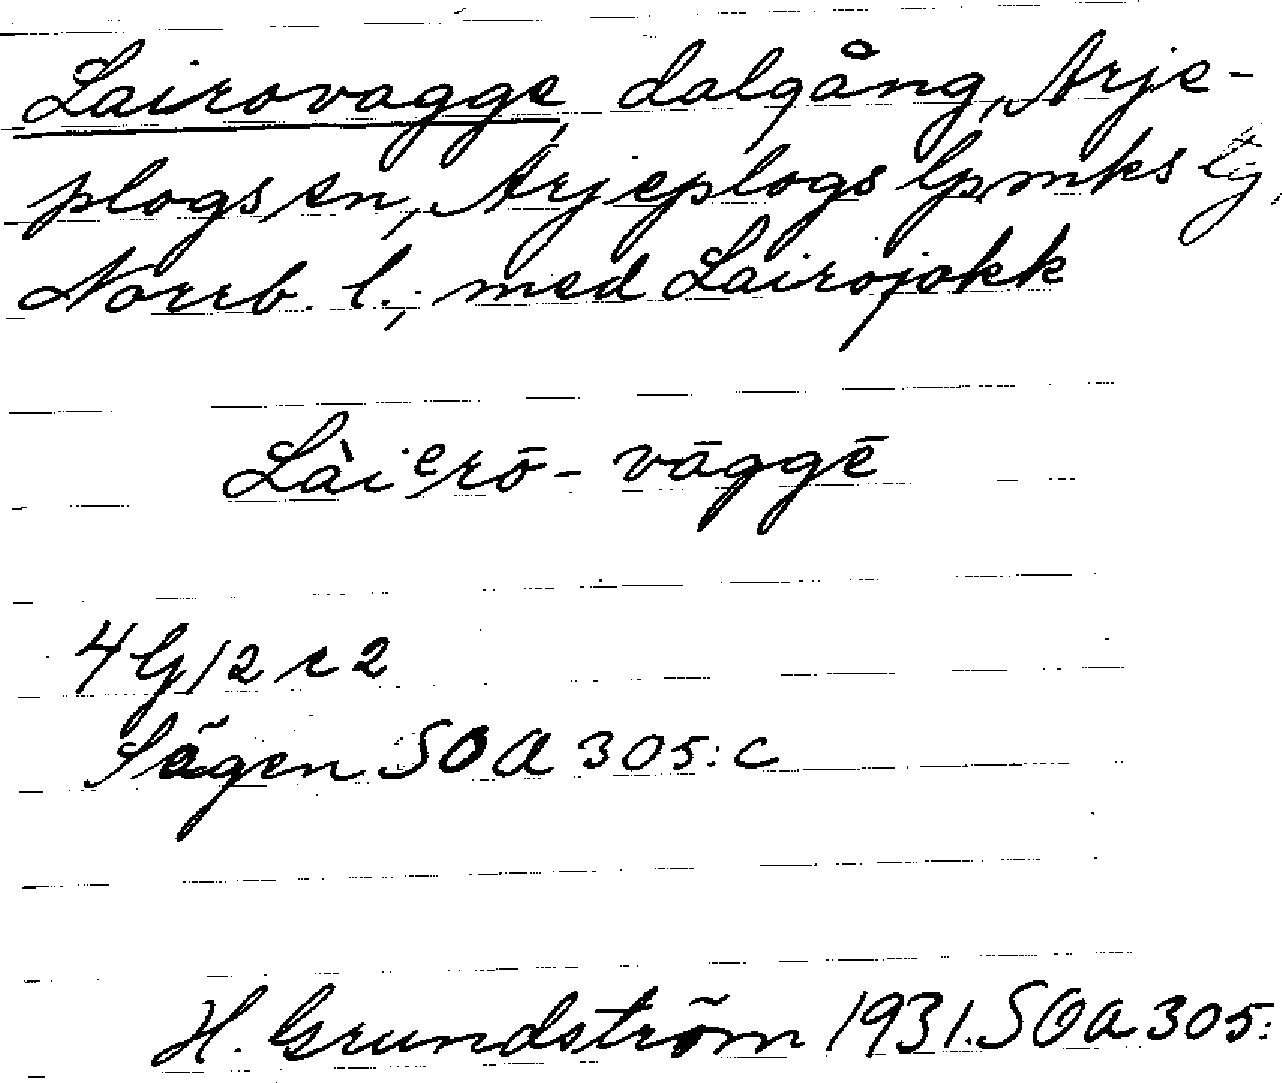 Lairovagge, dalgång, Arje-
plogs sn, Arjeplogs lpmks tg,
Norrb. l., med Lairojokk
Lài e rō - vāggē
4G12 c 2
Sägen SOA 305:c
H. Grundström 1931. SOA 305: